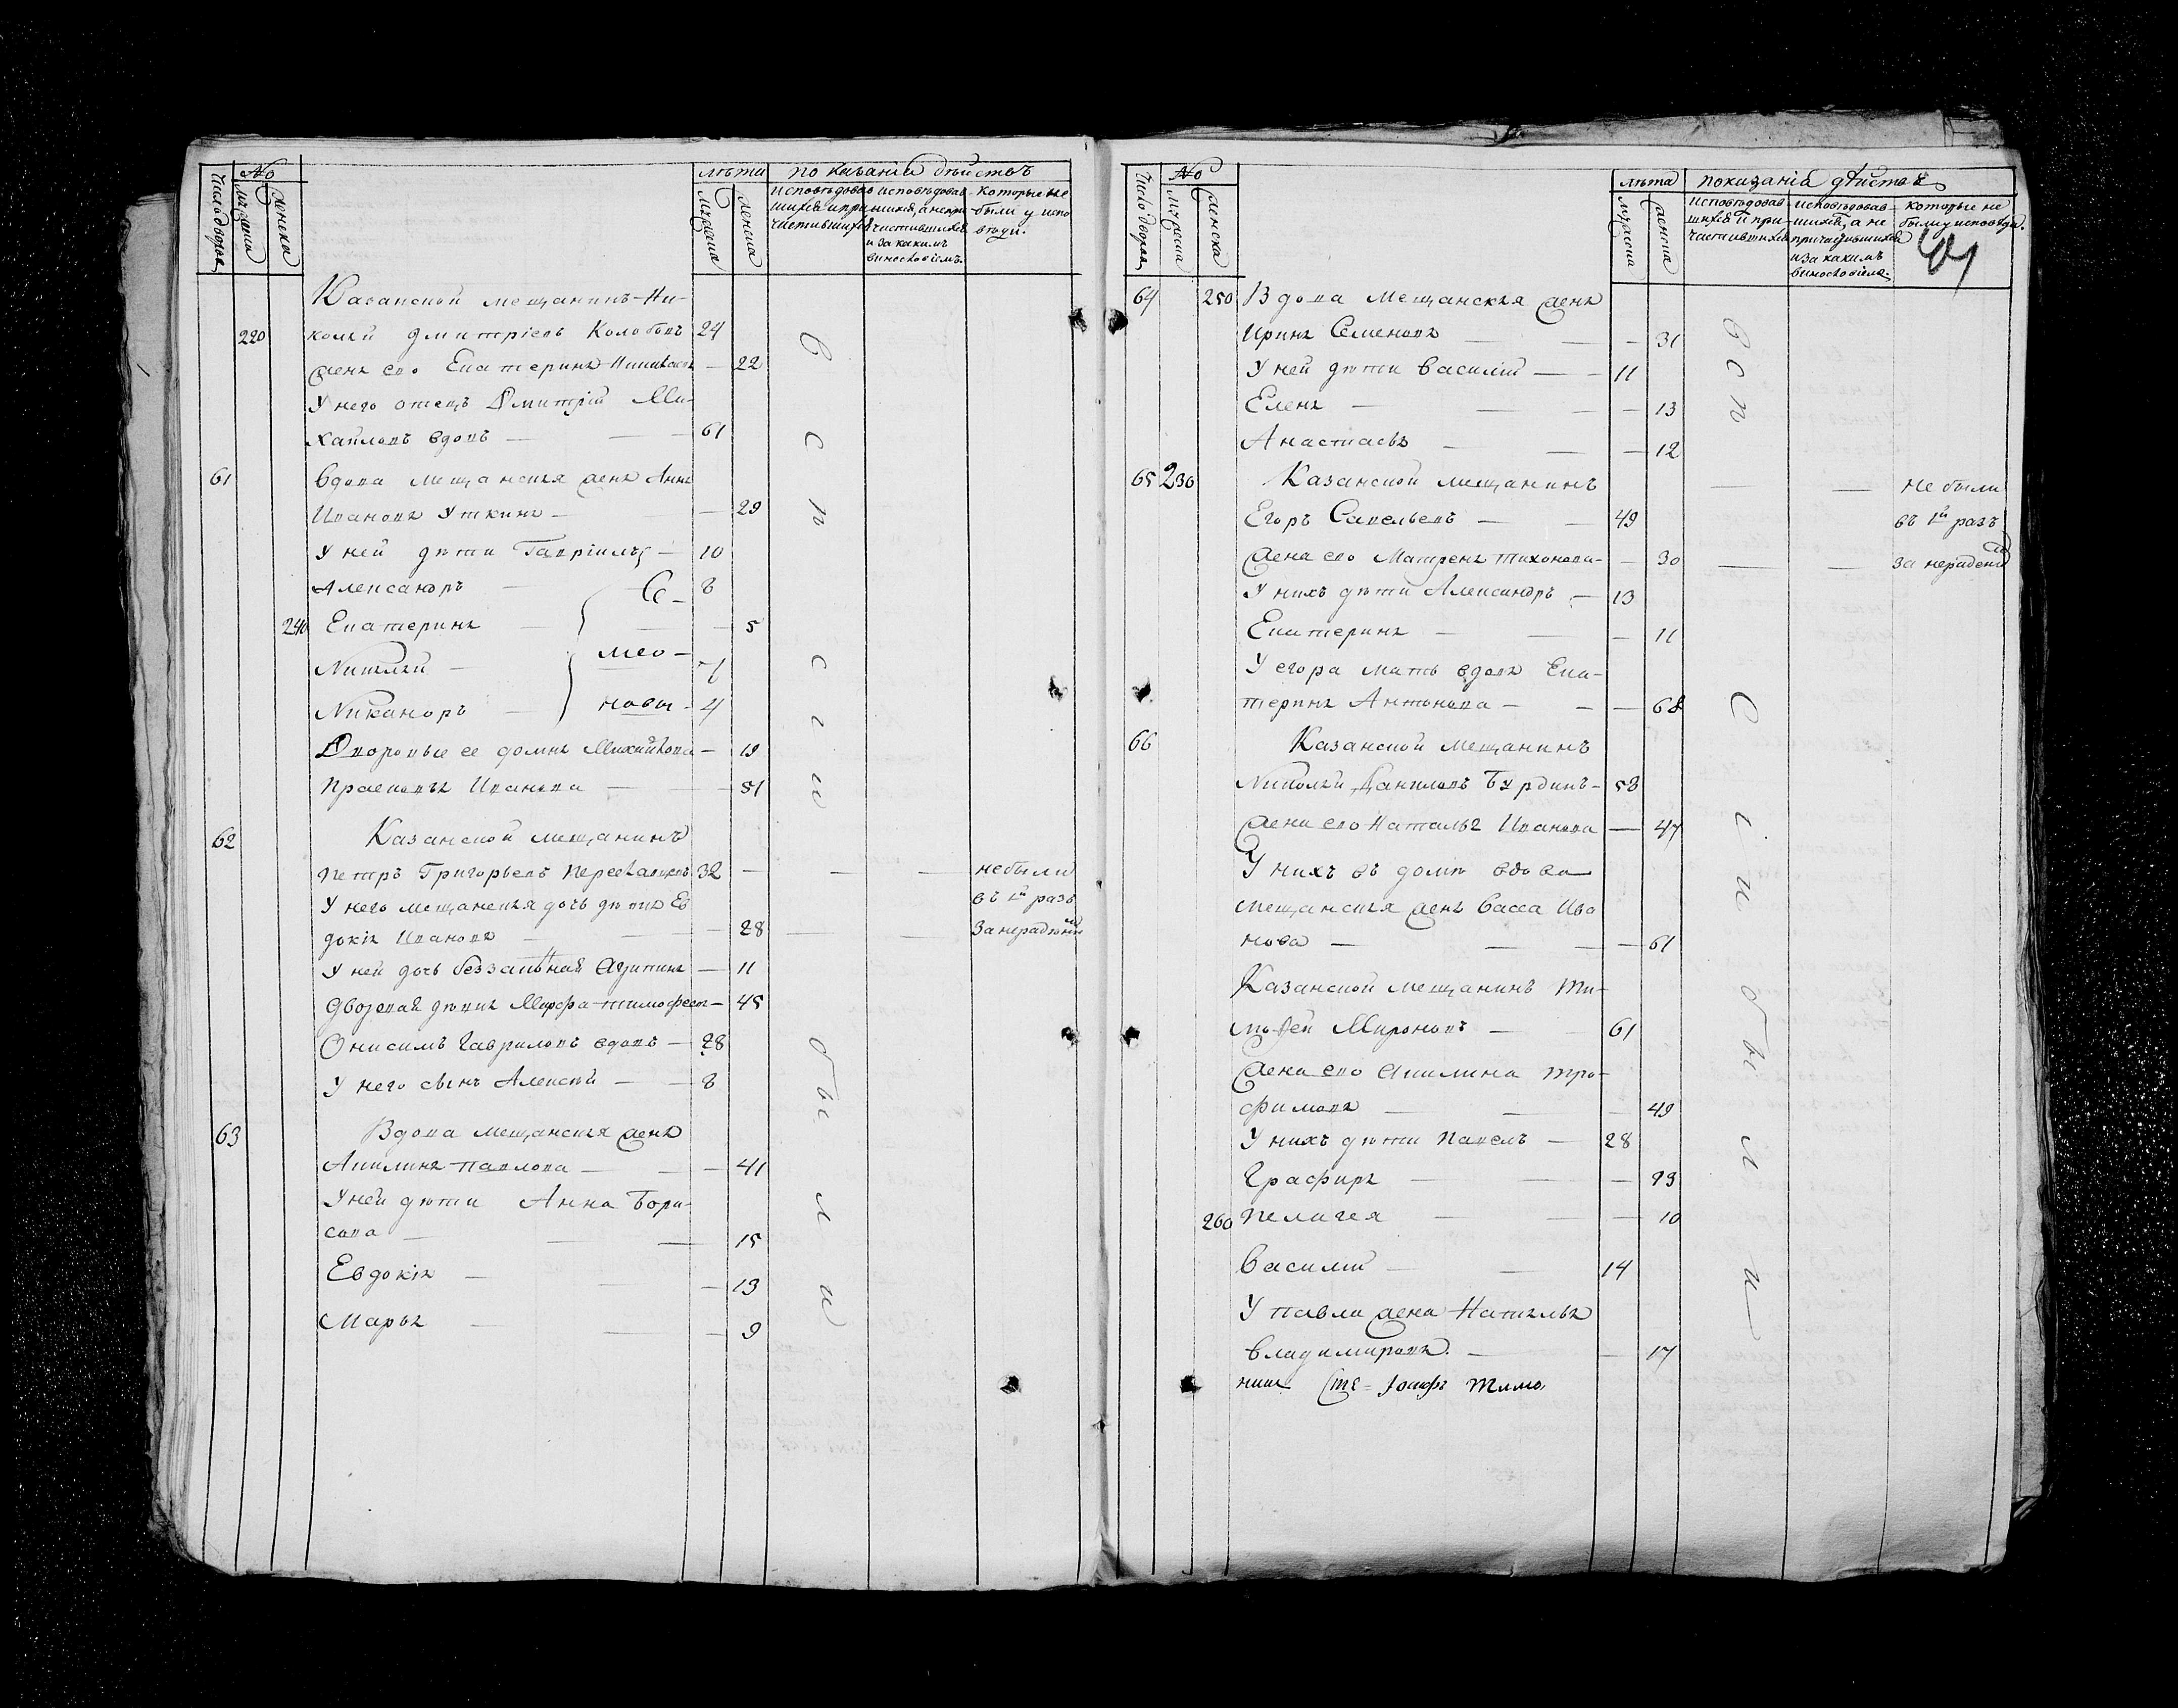 Число дворовъ № мужеска женска лѣта мужеска женска показанiи дѣйствъ
исповѣдовавшихся и причастившихся
исповѣдовавшихся, а непричастившихся и за какимъ винословiемъ.
которые не были у исповѣди.
Казанской мещанинъ Ни-
220 колай Дмитрiевъ Колобовъ 24
жена его Екатерина — 22
У него отецъ Дмитрiй Ми-
хайловъ вдовъ — 61
61 Вдова мещанская жена Анна
Иванова Уткина — 29
У ней дѣти Гаврiилъ — 10
Александръ — 8
240 Екатерина — 5
Николай — 7
Никаноръ — 4
Се-
мео-
новы
Дворовые ее домна Михайлова — 19
Прасковья Иванова — 51
62 Казанской мещанинъ
Петръ Григорьевъ 32 — — — не были
У него мещанская дочь дѣвка Ев въ 1й разъ
докiя Иванова — 28 — — за нерадѣнiемъ
У ней дочь беззаконная — 11
Дворовая дѣвка Марфа тимофеева — 45
Онисимъ Гавриловъ вдовъ — 28
У него сынъ Алексѣй — 8
63 Вдова мещанская жена
Акилина павлова — 41
У ней дѣти Анна Бори-
сова — 15
Евдокiя — 13
Марья — 9
в с п с i и
б ы л и
Число дворовъ № мужеска женска лѣта мужеска женска показанiя дѣйства
исповѣдовавшихся и причастившихся
исповѣдовавшихся, а не причастившихся и за какимъ винословiемъ.
которые не были у исповѣди.
64 250 Вдова мещанская жена
Ирина Семенова — 31
У ней дѣти Василiй — 11
Елена — 13
Анастасья — 12
65 230 Казанской мещанинъ — — не были
Егоръ Савельевъ — 49 въ 1й разъ
жена его Матрена тихонова — 30 — — за нерадѣнiемъ
У нихъ дѣти Александръ — 13
Екатерина — 11
У егора мать вдова Ека-
терина Антонова — 68
66 Казанской мещанинъ
Николай Даниловъ Бурдинъ — 58
жена его Наталья Иванова — 47
У нихъ въ домѣ вдова
мещанская жена Васса Ива
нова — 61
Казанской мещанинъ Ти-
мофей Мироновъ — 61
жена его Акилина тро-
фимова — 49
У нихъ дѣти Павелъ — 28
Графира — 23
260 Пелагея — 10
Василiй — 14
У павла жена Наталья
Владимирова. — 17
в с п
с i и
б ы л и